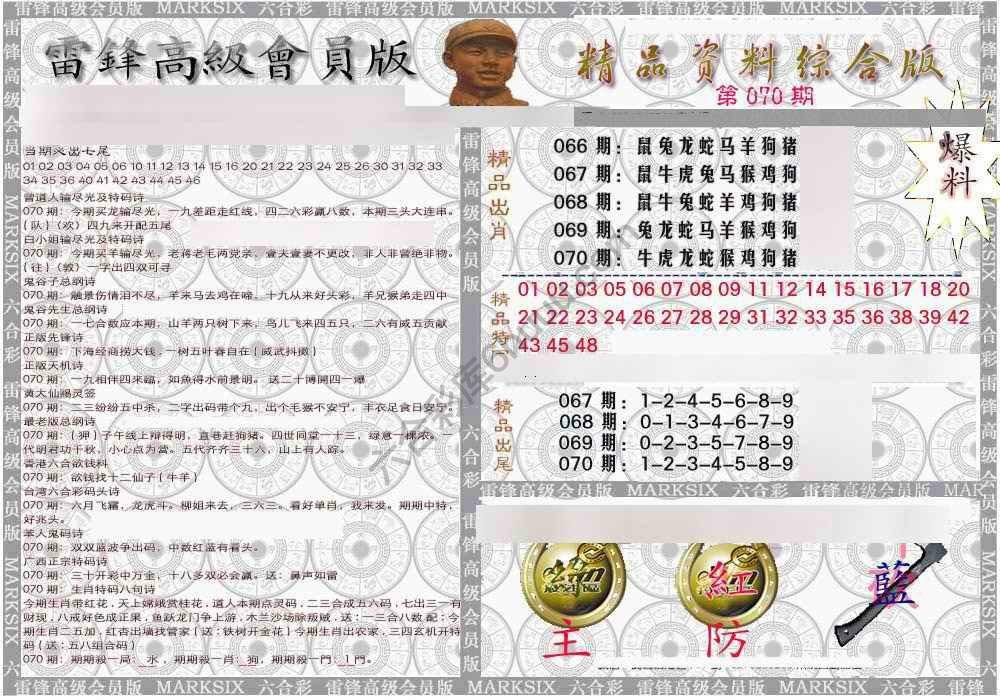 雷锋高级会员版 MARKSIX 六合彩 雷锋高级会员版 MARKSIX 六合彩 雷锋高级会员版
雷鋒高級會員版
精品资料综合版
第 070 期
爆料
当期只出七尾
01 02 03 04 05 06 10 11 12 13 14 15 16 20 21 22 23 24 25 26 30 31 32 33
34 35 36 40 41 42 43 44 45 46
曾道人输尽光及特码诗
070 期：今期买龙输尽光，一九差距走红线，四二六彩赢八数，本期三头大连串。
{队}〈欢〉四九来开配五尾
白小姐输尽光及特码诗
070 期：今期买羊输尽光，老蒋老毛两党亲，壹夫壹妻不更改，非人非曾绝非物。
{往}〈敦〉一字出四双可寻
鬼谷子总纲诗
070 期：融景伤情泪不尽，羊来马去鸡在啼，十九从来好头彩，羊兄猴弟走四中
鬼谷先生总纲诗
070 期：一七合数应本期，山羊两只树下来，鸟儿飞来四五只，二六有威五贡献
正版先锋诗
070 期：下海经商捞大钱，一树五叶春自在{威武抖擞}
正版天机诗
070 期：一九相伴四来臨，如魚得水前景明。送二十博開四一爆
黄大仙赐灵签
070 期：二三纷纷五中杀，二字出码带个九，出个毛猴不安宁，丰衣足食日安宁。
最老版总纲诗
070 期：{狎}子午线上辩得明，直巷赶狗猪。四世同堂一十三，绿意一棵浓。一
代明君功千秋，小心点为當。五代齐齐三十六，山上有人踪。
香港六合欲钱料
070 期：欲钱找十二仙子{牛羊}
台湾六合彩码头诗
070 期：六月飞霜，龙虎斗。柳姐来去，三六三。看好单肖，我来发。期期中特，
好兆头。
笨人鬼码诗
070 期：双双蓝波争出码，中数红蓝有看头。
广西正宗特码诗
070 期：三十开彩中万金，十八多双必会赢。送：鼻声如雷
070 期：生肖特码八句诗
今期生肖带红花，天上嫦娥赏桂花，道人本期点灵码，二三合成五六码，七出三一有
财现，八戒好色成正果，鱼跃龙门争上游，木兰沙场除叛贼，送：一三合八数 配：今
期生肖二五加，红杏出墙找管家{送：铁树开金花}今期生肖出农家，三四玄机开特
码{送：五八组合码}
070 期：期期殺一局：水，期期殺一肖：狗，期期殺一門：1 門。
精品出肖
066 期：鼠兔龙蛇马羊狗猪
067 期：鼠牛虎兔马猴鸡狗
068 期：鼠牛兔蛇羊鸡狗猪
069 期：兔龙蛇马羊猴鸡狗
070 期：牛虎龙蛇猴鸡狗猪
精品特
01 02 03 05 06 07 08 09 11 12 14 15 16 17 18 20
21 22 23 24 26 27 28 29 31 32 33 35 36 38 39 42
43 45 48
精品出尾
067 期：1-2-4-5-6-8-9
068 期：0-1-3-4-6-7-9
069 期：0-2-3-5-7-8-9
070 期：1-2-3-4-5-8-9
雷锋高级会员版 MARKSIX 六合彩 雷锋高级会员版
紅
藍
主
防
雷锋高级会员版 MARKSIX 六合彩 雷锋高级会员版 MARKSIX 六合彩 雷锋高级会员版